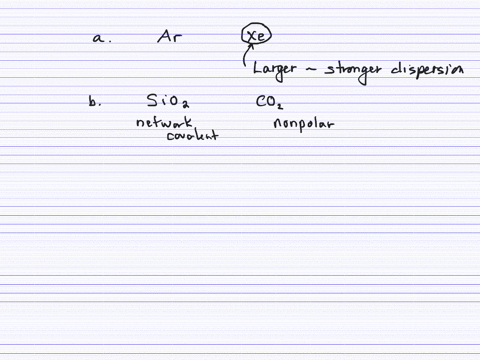 a. Ar Xe
Larger ~ stronger dispersion
b. SiO₂ CO₂
network nonpolar
covalent